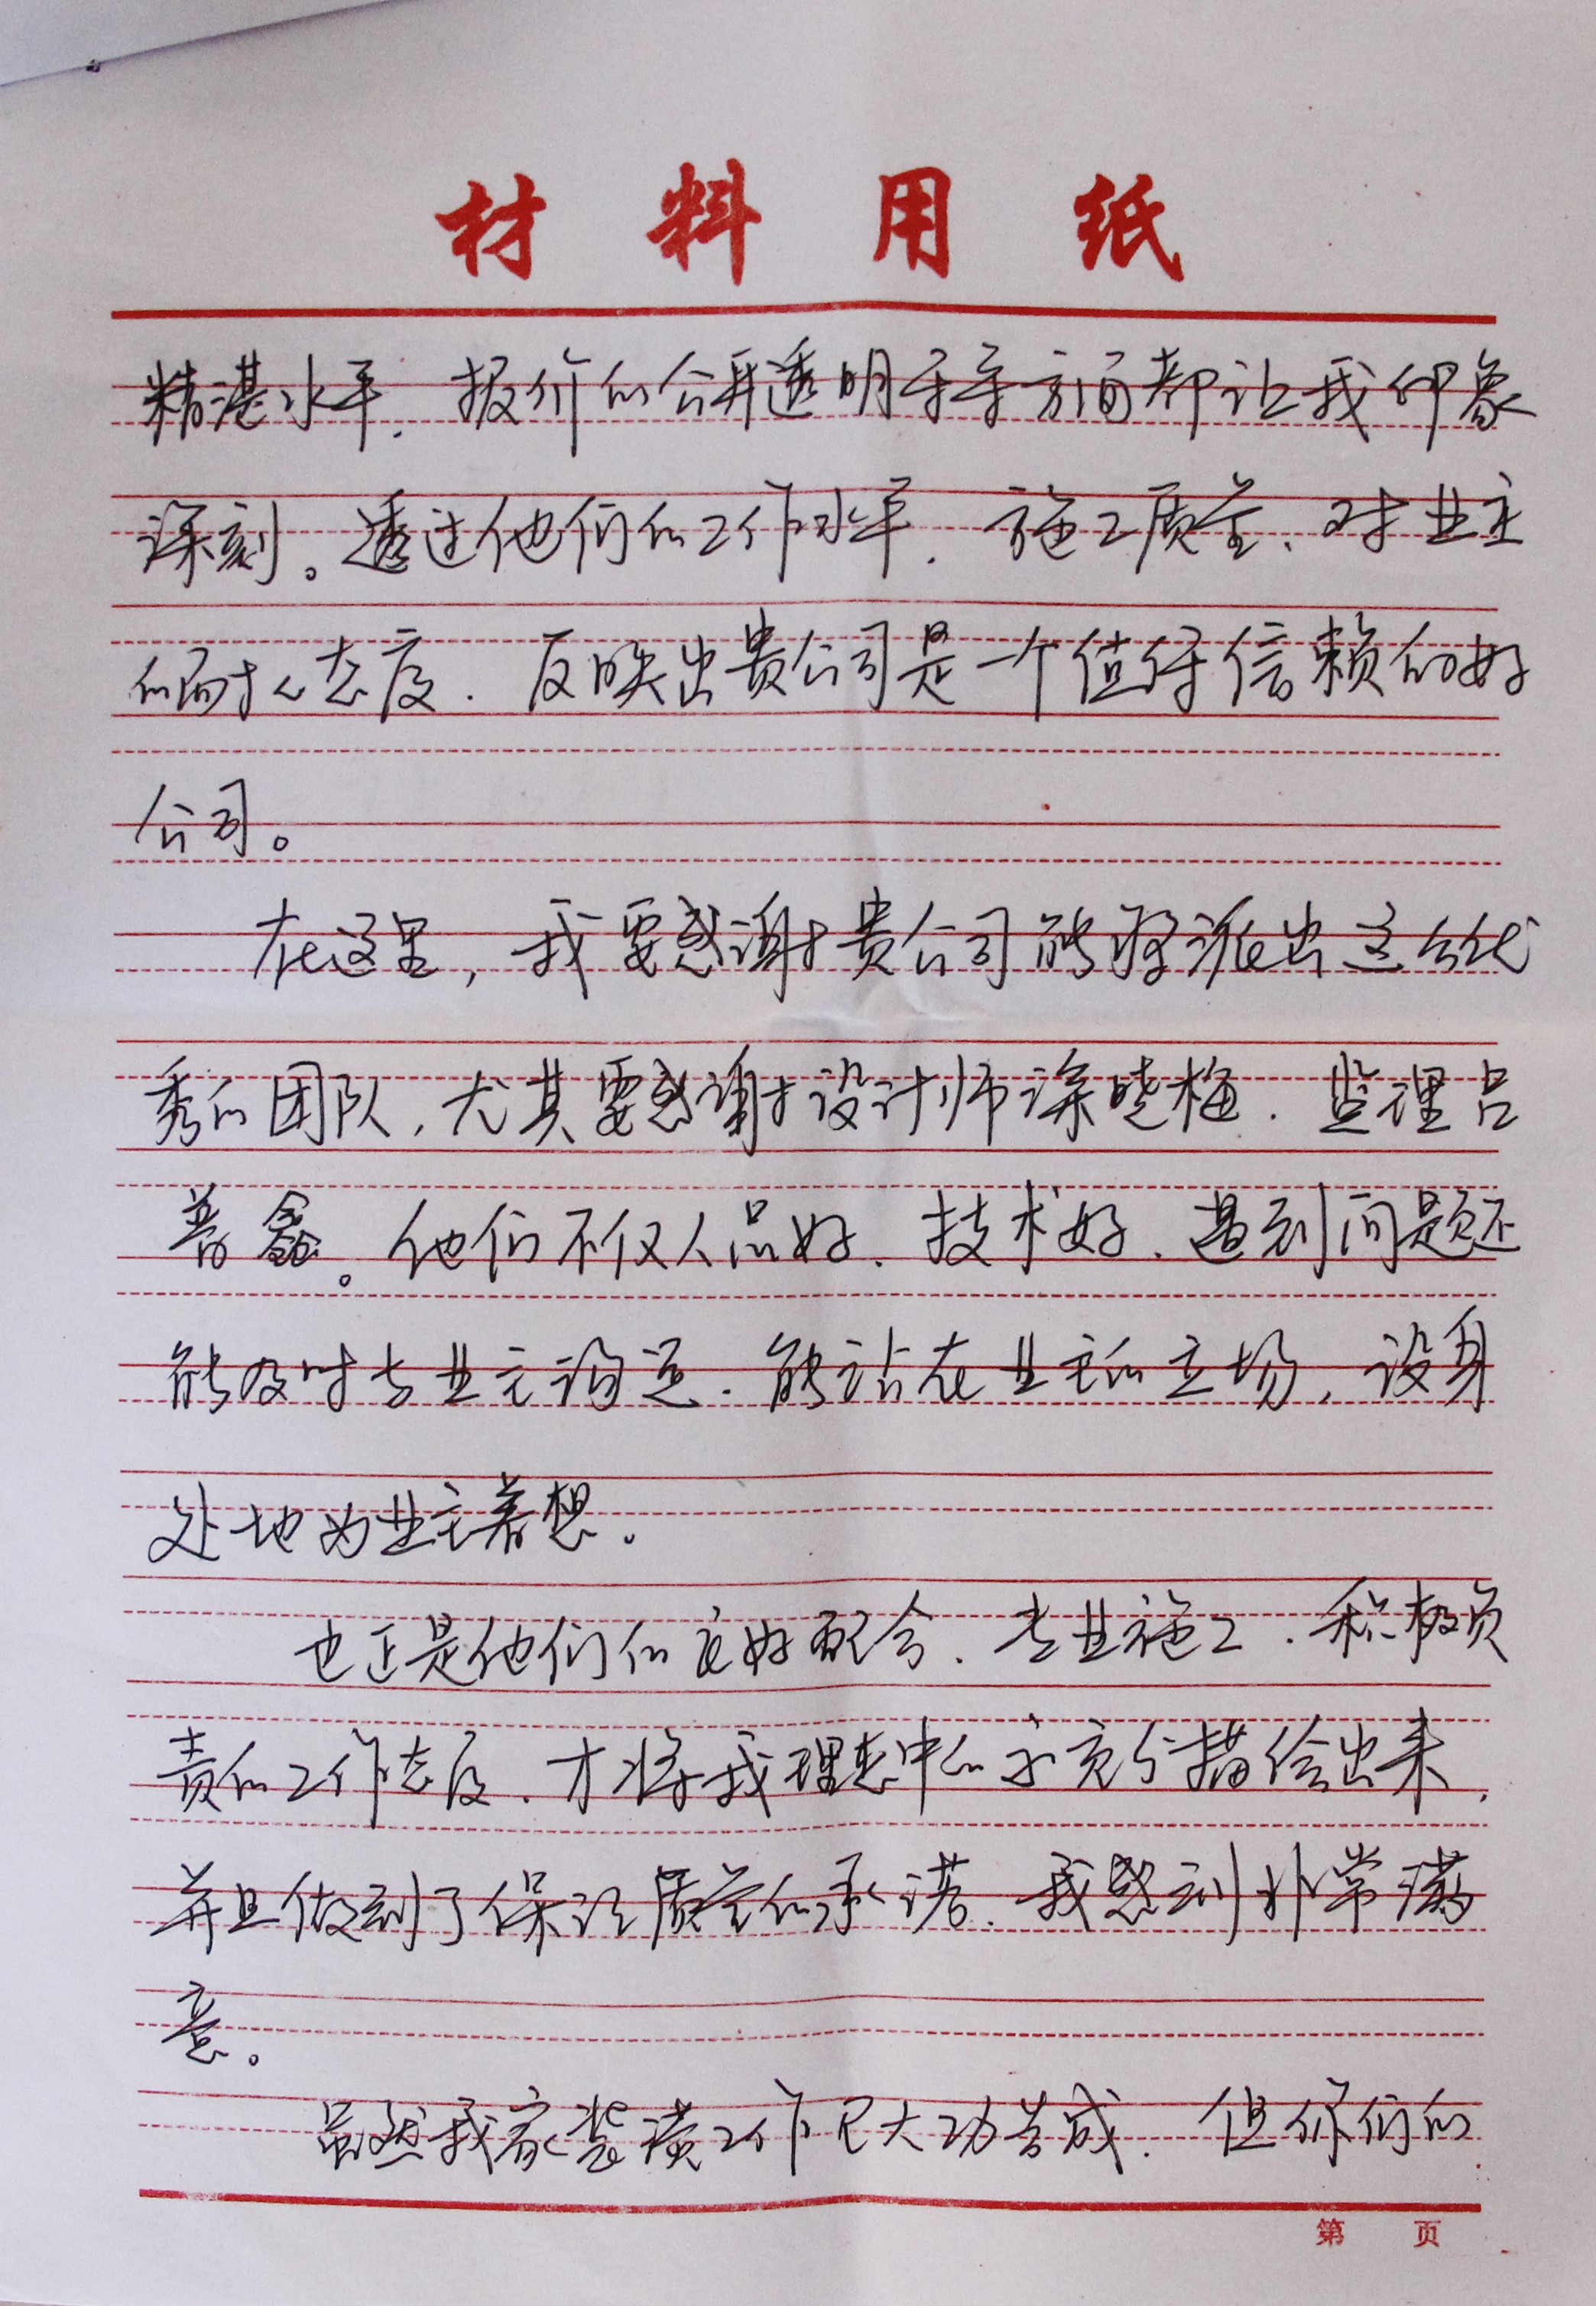 材料用纸
精湛水平、报价的公开透明等等方面都让我印象
深刻。透过他们的工作水平、施工质量、对业主
的耐心态度、反映出贵公司是一个值得信赖的好
公司。
在这里，我要感谢贵公司能够派出这么优
秀的团队，尤其要感谢设计师涂晓梅、监理吕
普鑫。他们不仅人品好、技术好、遇到问题还
能及时与业主沟通、能站在业主的立场，设身
处地为业主着想。
也正是他们的良好配合、专业施工、积极负
责的工作态度、才将我理想中的家充分描绘出来，
并且做到了保证质量的承诺、我感到非常满
意。
虽然我家装潢工作已大功告成、但你们的
第 页